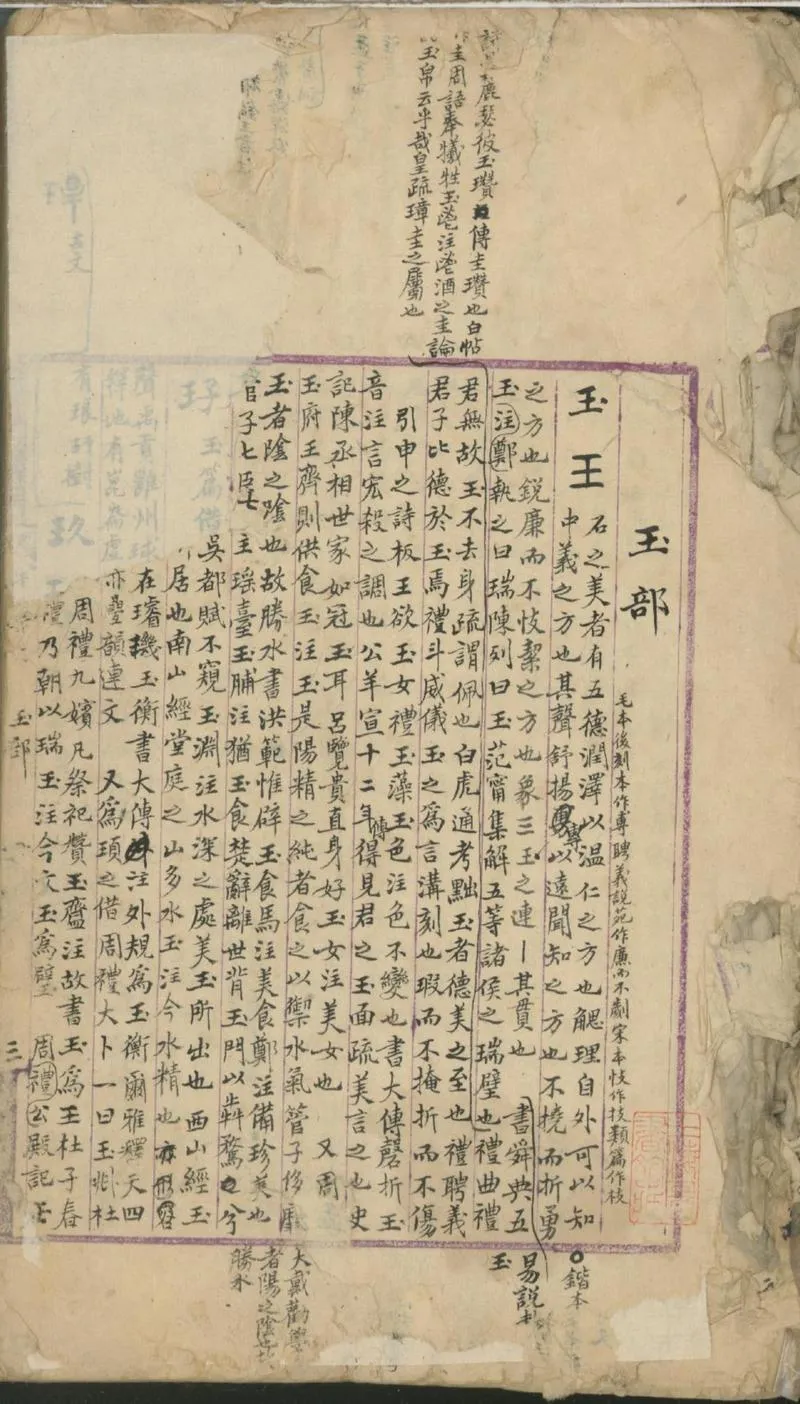 玉部
毛本後刻本作專聘義說苑作廉而不劌宋本忮作技類篇作枝
玉王
石之美者有五德潤澤以温仁之方也䚡理自外可以知
中義之方也其聲舒揚專以遠聞知之方也不撓而折勇
之方也鋭廉而不忮絜之方也象三玉之連丨其貫也 書舜典五
玉注鄭執之曰瑞陳列曰玉范甯集解五等諸侯之瑞璧也禮曲禮
君無故玉不去身疏謂佩也白虎通考黜玉者德美之至也禮聘義
君子比德於玉焉禮斗威儀玉之為言溝刻也瑕而不掩折而不傷
引申之詩板王欲玉女禮玉藻玉色注色不變也書大傳磬折玉
音注言宏殺之調也公羊宣十二年傳得見君之玉面疏美言之也史
記陳丞相世家如冠玉耳吕覽貴直身好玉女注美女也 又周
玉府王齊則供食玉注玉是陽精之純者食之以禦水氣管子侈靡
玉者陰之陰也故勝水書洪範惟辟玉食馬注美食鄭注備珍美也
主瑶臺玉脯注猶玉食楚辭離世背玉門以犇騖兮
吳都賦不窺玉淵注水深之處美玉所出也西山經玉
居也南山經堂庭之山多水玉注今水精也
在璿璣玉衡書大傳注外規為玉衡爾雅釋天四
亦疊韻連文 又為頊之借周禮大卜一曰玉兆杜
周禮九嬪凡祭祀贊玉齍注故書玉為王杜子春
禮乃朝以瑞玉注今文玉為璧 周禮公殿記
玉部
三
鹿瑟彼玉瓚傳圭瓚也白帖
圭周語奉犧牲玉鬯注鬯酒之圭論
玉帛云乎哉皇疏璋圭之屬也
鍇本
易說
玉
大戴勸學
者陽之陰也故
勝水